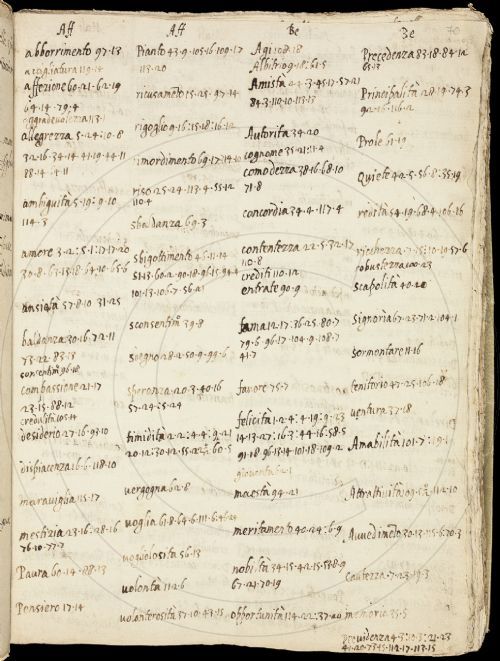 Aff
abborrimento 97.13
accigliatura 119.14
affezione 60.21.62.19
64.14.79.4
aggradevolezza 113.1
allegrezza 5.24.10.8
32.16.34.14.41.19.44.11
88.14.
ambiguità 5.19.9.10
114.3
amore 3.2.
ansietà 57.8.10 31.25
baldanza 30.16.72.11
73.22.83.13
consentim.
compassione 21.17
23.15.88.12
credulità
desiderio 27.16.93.10
dispiacenza 16.6.118.10
maraviglia 115.17
mestizia 23.16.28.16
76.10.77.7
Paura 60.14.88.13
Pensiero 17.14
Aff
Pianto 43.9.105.16.109.17
113.20
ricusamento 15.25.97.14
rigoglio 9.16.15.18.16.12
rimordimento 69.17.74.10
riso 25.24.113.4.55.12
110.4
sbadanza 69.3
sbigottimento 46.11.14
101.13.106.7.56.21
sconsentim. 39.8
sdegno 28.2.50.9.99.6
speranza 20.3.40.16
57.24.5.24
timidità
vergogna 62.8
voglia 61.8.64.6.111.6.46.24
vogliolosità 56.13
volontà 112.6
volonterosità 57.10.43.15
Be
Agi 108.18
Albitrio 9.18.61.5
Amistà 22.3.45.17.57.21
84.3.110.10.113.13
Autorità 34.20
cognome 35.21.11.4
comodezza 38.16.68.10
71.8
concordia 34.4.117.4
contentezza 22.5.32.17
110.8
crediti 110.12
entrate 90.9
fama 12.17.36.25.80.7
79.6.96.17.104.9.108.7
41.7
favore 75.7
felicità 1.2.4.
14.13.27.16.3.44.16.58.5
91.18.96.15.14.101.18.109.2
gioventù 62.1
maestà 94.21
meritamento 40.24.6.9
nobiltà 34.15.42.15.53.8.9
67.21.70.19
opportunità 114.22.37.20
Be
Precedenza 83.18.84.12
85.13
Principalità 28.19.74.3
92.16.116.2
Prole 61.19
Quiete 42.5.56.8.35.19
redità 54.19.68.4.106.16
ricchezza 7.
robustezza 100.23
Scapolità 40.20
Signoria 67.23.71.2.104.1
Sormontare 11.16
tenitorio 47.25.106.18
ventura 37.18
Amabilità 101.7.19.1
Attrattività
Avvedimento 20.13.
Cautezza 7.23.19.3
memoria 35.5
previdenza 4.3.10.3.21.23
41.20.73.15.112.17.113.15